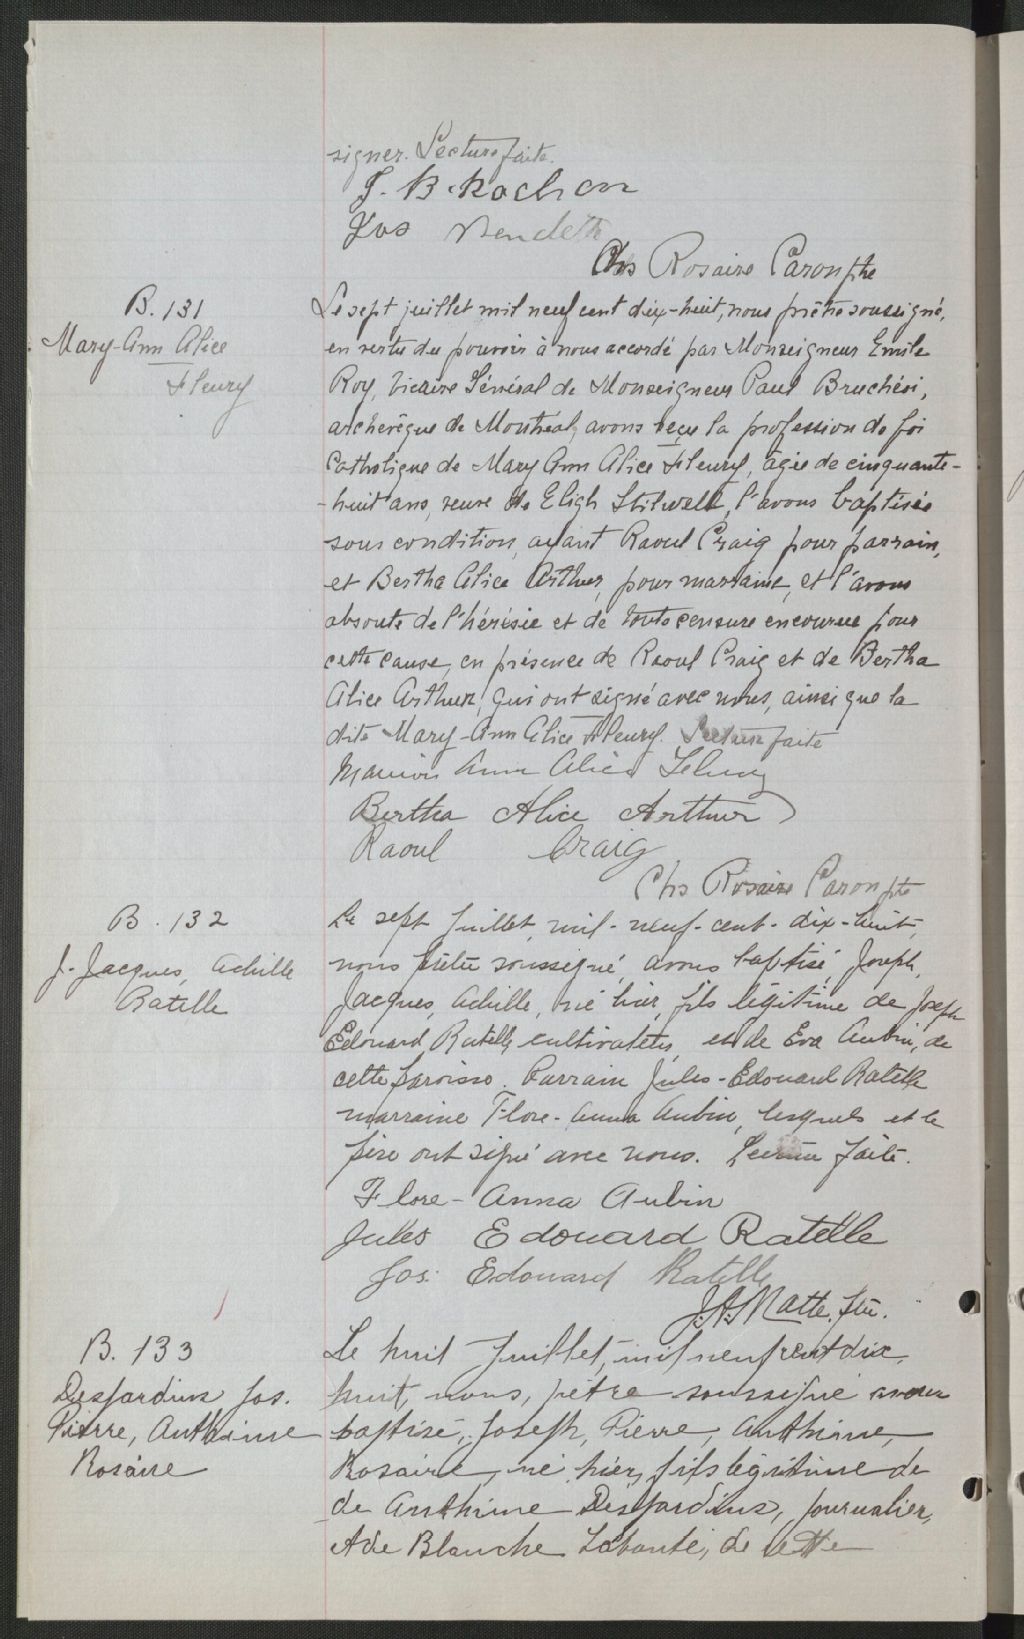 signer. Lecture faite.
J. B. Rochon
Jos
Chs Rosaire Caron ptre
B. 131
Mary-Ann Alice
Fleury
Le sept juillet mil neuf cent dix-huit, nous prêtre soussigné,
en vertu du pouvoir à nous accordé par Monseigneur Emile
Roy, Vicaire Général de Monseigneur Paul Bruchési,
archevêque de Montréal, avons reçu la profession de foi
Catholique de Mary Ann Alice Fleury, âgée de cinquante-
-huit ans, veuve de Eligh Stilwell, l'avons baptisée
sous condition, ayant Raoul Craig pour parrain,
et Bertha Alice Arthur, pour marraine, et l'avons
absoute de l'hérésie et de toute censure encourue pour
cette cause, en présence de Raoul Craig et de Bertha
Alice Arthur, qui ont signé avec nous, ainsi que la
dite Mary-Ann Alice Fleury. Lecture faite
Ann Alice
Bertha Alice Arthur
Raoul Craig
Chs Rosaire Caron ptre
B. 132
J. Jacques, Achille
Ratelle
Le sept Juillet, mil-neuf-cent-dix-huit,
nous prêtre soussigné, avons baptisé, Joseph,
Jacques, Achille, né hier, fils légitime de Joseph
Edouard Ratelle, cultivateur, et de Eva Aubin, de
cette paroisse. Parrain Jules-Edouard Ratelle
marraine Flore-Anna Aubin, lesquels et le
père ont signé avec nous. Lecture faite.
Flore-Anna Aubin
Jules Edouard Ratelle
Jos. Edouard Ratelle
J. A. Matte, ptre.
B. 133
Desjardins Jos.
Pierre, Anthime
Rosaire
Le huit Juillet, mil neuf cent dix
huit, nous, prêtre soussigné avons
baptisé, Joseph, Pierre, Anthime,
Rosaire, né hier, fils légitime de
de Anthime Desjardins, journalier,
et de Blanche Labonté, de cette